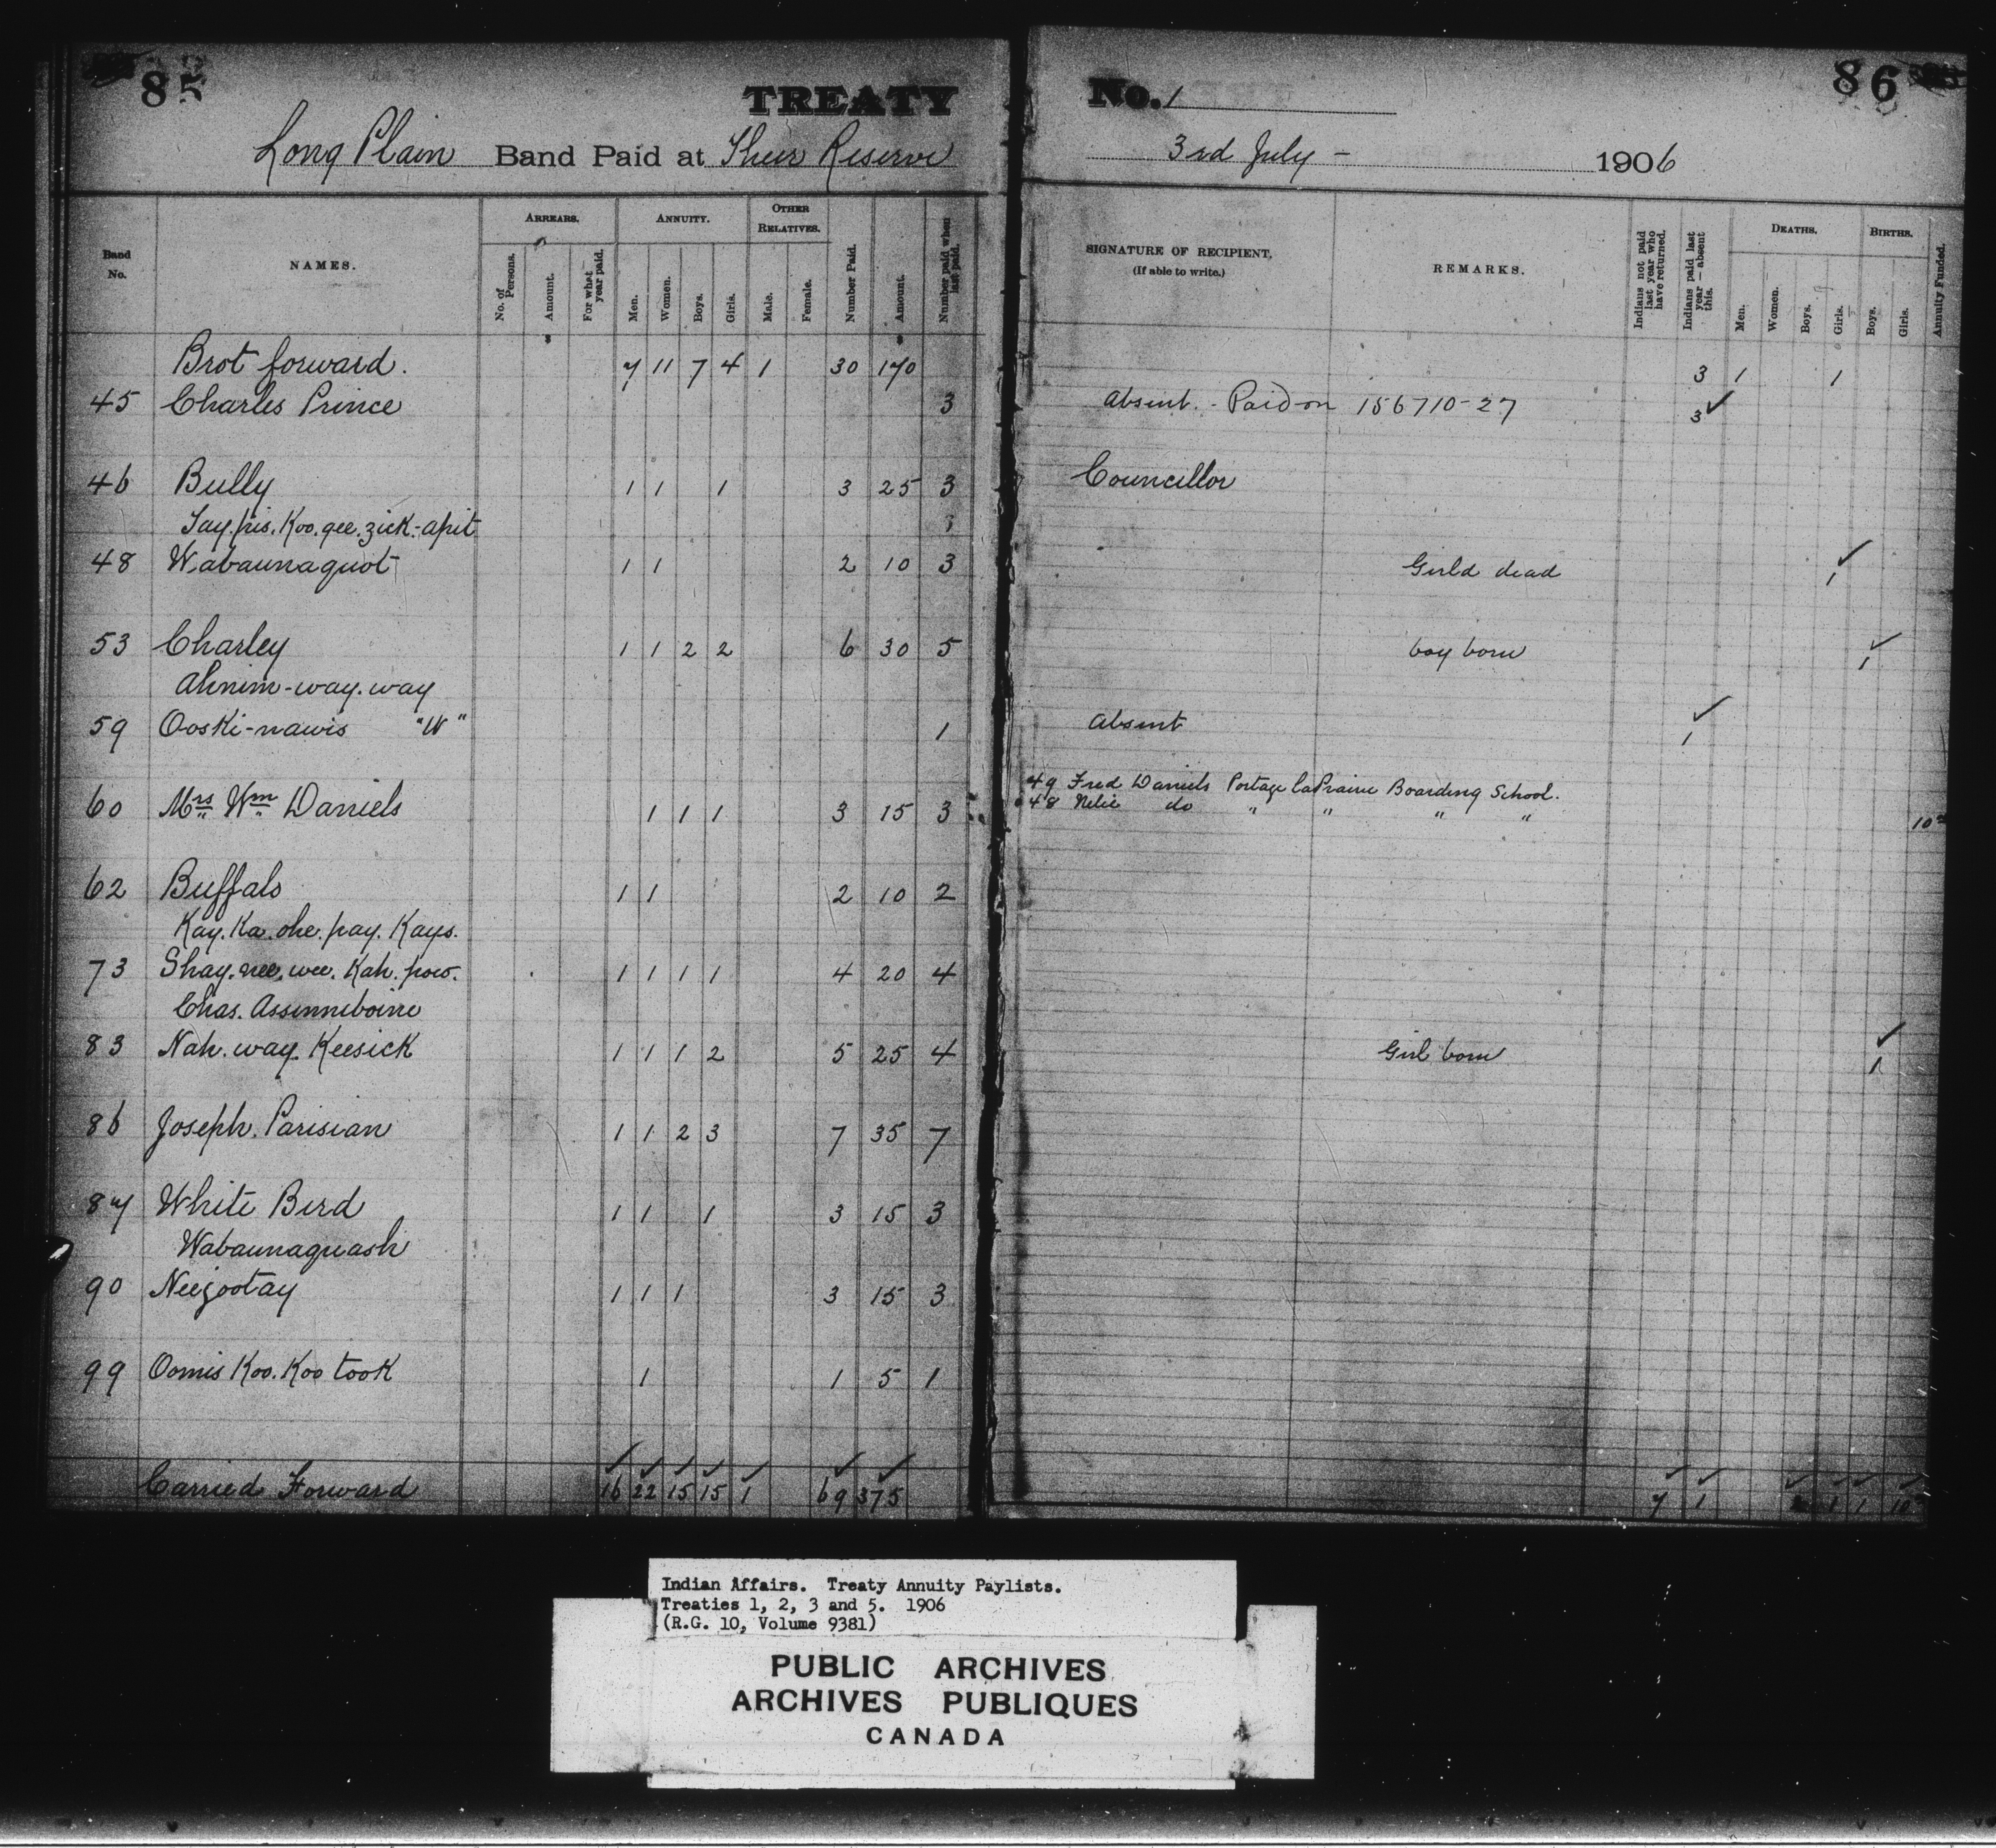 85
TREATY No. 1
86
Long Plain Band Paid at Their Reserve 3rd July - 1906
Band No.
NAMES.
ARREARS.
No. of Persons.
Amount.
For what year paid.
ANNUITY.
Men.
Women.
Boys.
Girls.
OTHER RELATIVES.
Male.
Female.
Number Paid.
Amount.
Number paid when last paid.
SIGNATURE OF RECIPIENT,
(If able to write.)
REMARKS.
Indians not paid last year who have returned.
Indians paid last year — absent this.
DEATHS.
Men.
Women.
Boys.
Girls.
BIRTHS.
Boys.
Girls.
Annuity Funded.
Brot forward. 7 11 7 4 1 30 170 3 1 1
45 Charles Prince 3 Absent. - Paid on 156710-27 3 ✓
46 Bully 1 1 1 3 25 3 Councillor
Tay.pis.Koo.gee.zick-apit
48 Wabaunaquot 1 1 2 10 3 Girld dead 1 ✓
53 Charley 1 1 2 2 6 30 5 boy born 1 ✓
Ahnim-way.way
59 Ooski-nawis "W" 1 Absent 1 ✓
49 Fred Daniels Portage laPrairie Boarding School.
60 Mrs Wm Daniels 1 1 1 3 15 3 48 Nelie do " " " " 10
62 Buffalo 1 1 2 10 2
Kay.Ka.ohe.pay.Kays.
73 Shay.nee.wee.Kah.pow. 1 1 1 1 4 20 4
Chas. Assinniboine
83 Nah.way.Keesick 1 1 1 2 5 25 4 Girl born 1 ✓
86 Joseph. Parisian 1 1 2 3 7 35 7
87 White Bird 1 1 1 3 15 3
Wabaunaquash
90 Neezootay 1 1 1 3 15 3
99 Oomis Koo.Koo took 1 1 5 1
Carried Forward 16 22 15 15 1 69 375 7 1 1 1 10
Indian Affairs. Treaty Annuity Paylists.
Treaties 1, 2, 3 and 5. 1906
(R.G. 10, Volume 9381)
PUBLIC ARCHIVES
ARCHIVES PUBLIQUES
CANADA